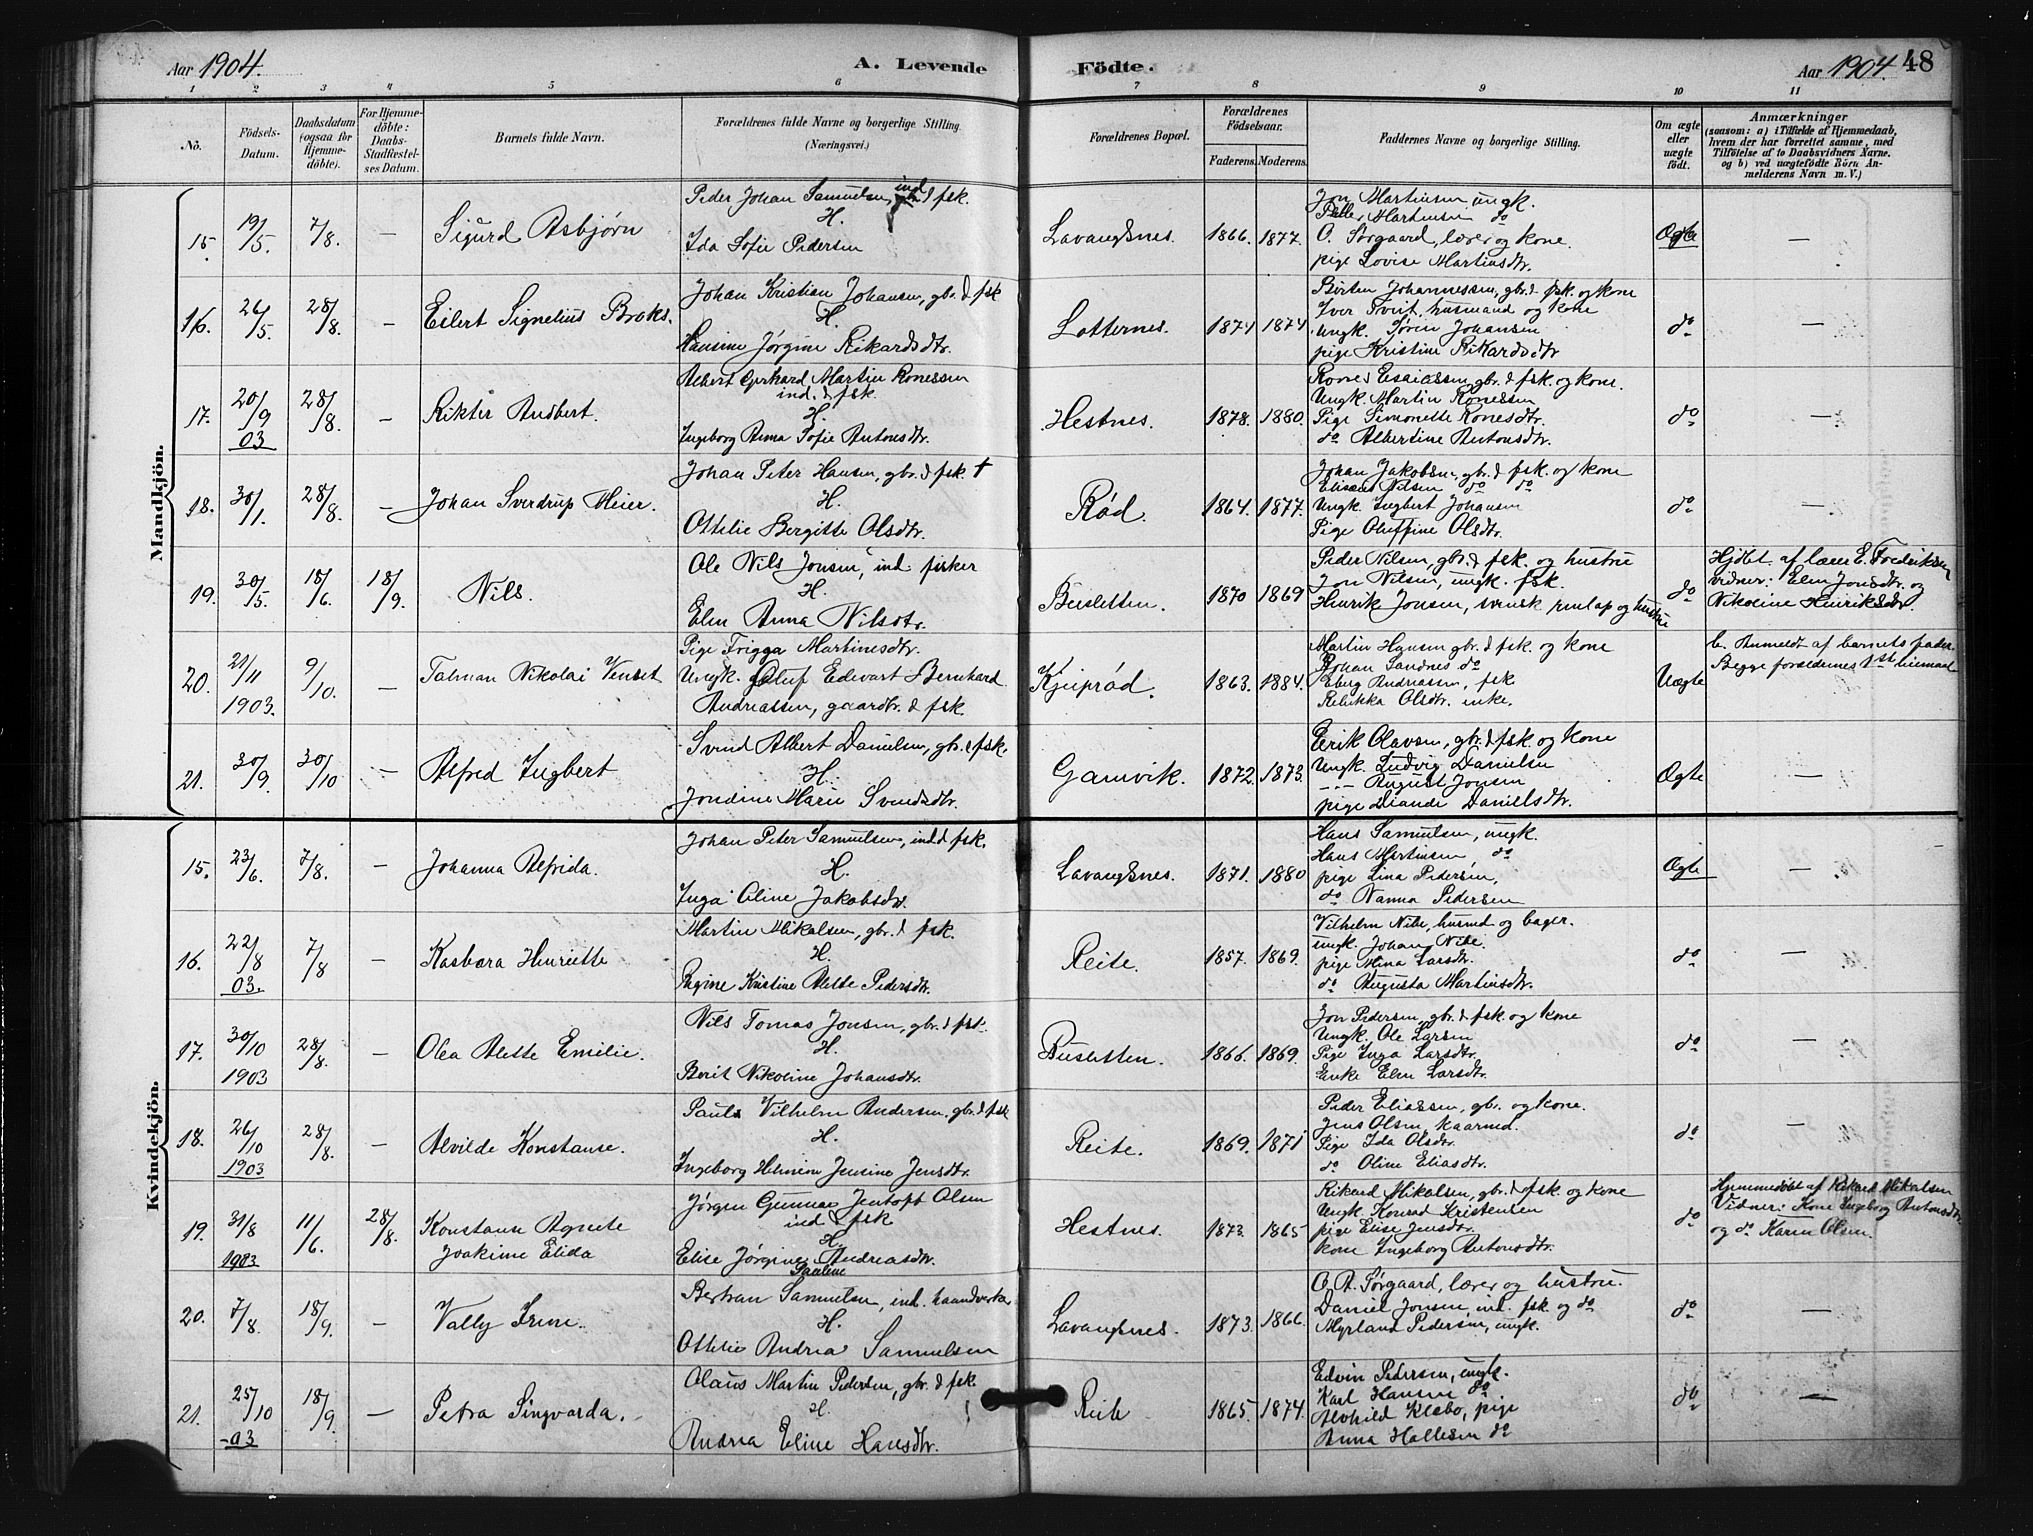 Aar 1904.
A. Levende Födte.
Aar 1904. 48
1 2 3 4 5 6 7 8 9 10 11
No.
Födsels-Datum.
Daabsdatum (ogsaa for Hjemmedöbte).
For Hjemmedöbte: Daabs-Stadfestelses Datum.
Barnets fulde Navn.
Forældrenes fulde Navne og borgerlige Stilling. (Næringsvei.)
Forældrenes Bopæl.
Forældrenes Födselsaar.
Faderens. Moderens.
Faddernes Navne og borgerlige Stilling.
Om ægte eller uægte födt.
Anmærkninger
(saasom: a) i Tilfælde af Hjemmedaab, hvem der har forrettet samme, med Tilföielse af to Daabsvidners Navne, og b) ved uægtefödte Börn Anmelderens Navn m. V.)
Mandkjön.
15. 19/5. 7/8. — Sigurd Asbjørn
Peder Johan Samuelsen, ind fsk.
H.
Ida Sofie Pedersen
Lavangsnes. 1866. 1877.
Jon Martinsen, ungk.
Martinsen do
O. Sørgaard, lærer og kone.
pige Lovise Martinsdtr.
Ægte —
16. 26/5. 28/8. — Eilert Signelius Broks.
Johan Kristian Johansen, gbr. & fsk
H.
Hansine Jørgine Rikardsdtr.
Lotternes. 1874 1874
Johannessen, gbr. & fsk. og kone
Iver husmand og kone
Ungk. Søren Johansen
pige Kristine Rikardsdtr
do —
17. 20/9 03 28/8. — Rikter Andbert.
Albert Gerhard Martin Ronessen
ind. & fsk
H.
Ingeborg Anna Sofie Antonsdtr.
Hestnes. 1878. 1880.
Rones Esaiassen, gbr. & fsk. og kone.
Ungk. Martin Ronessen
Pige Simonette Ronesdtr.
do Albertine Antonsdtr.
do —
18. 30/1. 28/8. — Johan Sverdrup Meier.
Johan Peter Hansen, gbr. & fsk †
H.
Ottelie Bergitte Olsdtr.
Rød. 1864. 1877.
Johan Jakobsen, gbr. & fsk. og kone
Elisæus Nilsen do do
Ungk. Ingbert Johansen
Pige Oluffine Olsdtr.
do —
19. 30/5. 18/6. 18/9. Nils.
Ole Nils Jonsen, ind. fisker
H.
Elen Anna Nilsdtr.
1870 1869
Peder Nilsen, gbr. & fsk. og hustru
Jon Nilsen, ungk. fsk.
Henrik Jonsen, svensk og hustru
do
Hjdøbt. af lærer E. Fredriksen
vidner: Elen Jonsdtr. og
Nikoline Henriksdtr.
20. 21/11 1903. 9/10. — Talman Nikolai
Pige Frigga Martinesdtr.
Ungk. Oluf Edevart Bernhard
Andreassen, gaardbr. & fsk.
Kjeiprød. 1863. 1884.
Martin Hansen gbr. & fsk og kone
Johan Sandnes do
Eberg Andreassen, fsk
Rebekka Olsdtr. enke.
Uægte
b. Anmeldt af barnets fader.
Begge forældrenes 1ste leiermaal
21. 30/9. 30/10 — Alfred Ingbert
Svend Albert Danielsen, gbr. & fsk.
H.
Jondine Marie Svendsdtr.
Gamvik. 1872. 1873.
Eerik Olavsen, gbr. & fsk. og kone
Ungk. Ludvig Danielsen
— " — August Jonsen
pige Danielsdtr.
Ægte —
Kvindekjön.
15. 23/6. 7/8. — Johanna Alfrida.
Johan Peter Samuelsen, ind & fsk.
H.
Inga Oline Jakobsdtr.
Lavangsnes. 1871. 1880
Hans Samuelsen, ungk.
Hans Martinsen, do
pige Lina Pedersen,
do Nanna Pedersen
Ægte —
16. 22/8 03. 7/8 — Kasbara Henriette
Martin Mikalsen, gbr. & fsk.
H.
Regine Kristine Alette Pedersdtr.
Reite. 1857. 1869.
Vilhelm Nibe, husmd og bager.
ungk. Johan Nibe.
pige Mina Larsdtr.
do Augusta Martinsdtr.
do —
17. 30/10 1903 28/8. — Olea Alette Emelie.
Nils Tomas Jonsen, gbr. & fsk.
H.
Berit Nikoline Johansdtr.
1866. 1869.
Jon Pedersen, gbr. & fsk. og kone
Ungk. Ole Larsen
Pige Inga Larsdtr.
Enke Elen Larsdtr.
do —
18. 26/10 1903 28/8. — Alvilde Konstanse.
Paul Vilhelm Andersen, gbr. & fsk
H.
Ingeborg Jensine Jensdtr.
Reite. 1869. 1871
Peder Eliassen, gbr. og kone.
Jens Olsen kaarmd.
Pige Ida Olsdtr.
do Oline Eliasdtr.
do —
19. 31/8 1903 11/6. 28/8. Konstanse Agnete
Joakime Elida
Jørgen Gunnar Jentoft Olsen
ind & fsk
H.
Elise Jørgine Andreasdtr.
Hestnes. 1873. 1865
Rikard Mikalsen, gbr. & fsk. og kone
Ungk. Konrad Kristensen
pige Elise Jensdtr.
kone Ingeborg Antonsdtr.
do
Hjemmedøbt af Rikard Mikalsen
Vidner: Kone Ingeborg Antonsdtr.
og do Karen Olsen.
20. 7/8. 18/9. — Vally Irene.
Pauline
Bertran Samuelsen, ind. haandverker
H.
Ottelie Andrea Samuelsen
Lavangsnes. 1873. 1866.
O. A. Sørgaard, lærer og hustru.
Daniel Jonsen, ind. fsk. og do
Myrland Pedersen, ungk.
do —
21. 25/10 -03 18/9. — Petra Singvarda.
Olaus Martin Pedersen, gbr. & fsk.
H.
Andrea Eline Hansdtr.
Reite 1865. 1874.
Edvin Pedersen, ungk.
Karl Hansen do
Alvhild Klæbo, pige
Anna Hallesen do
do —